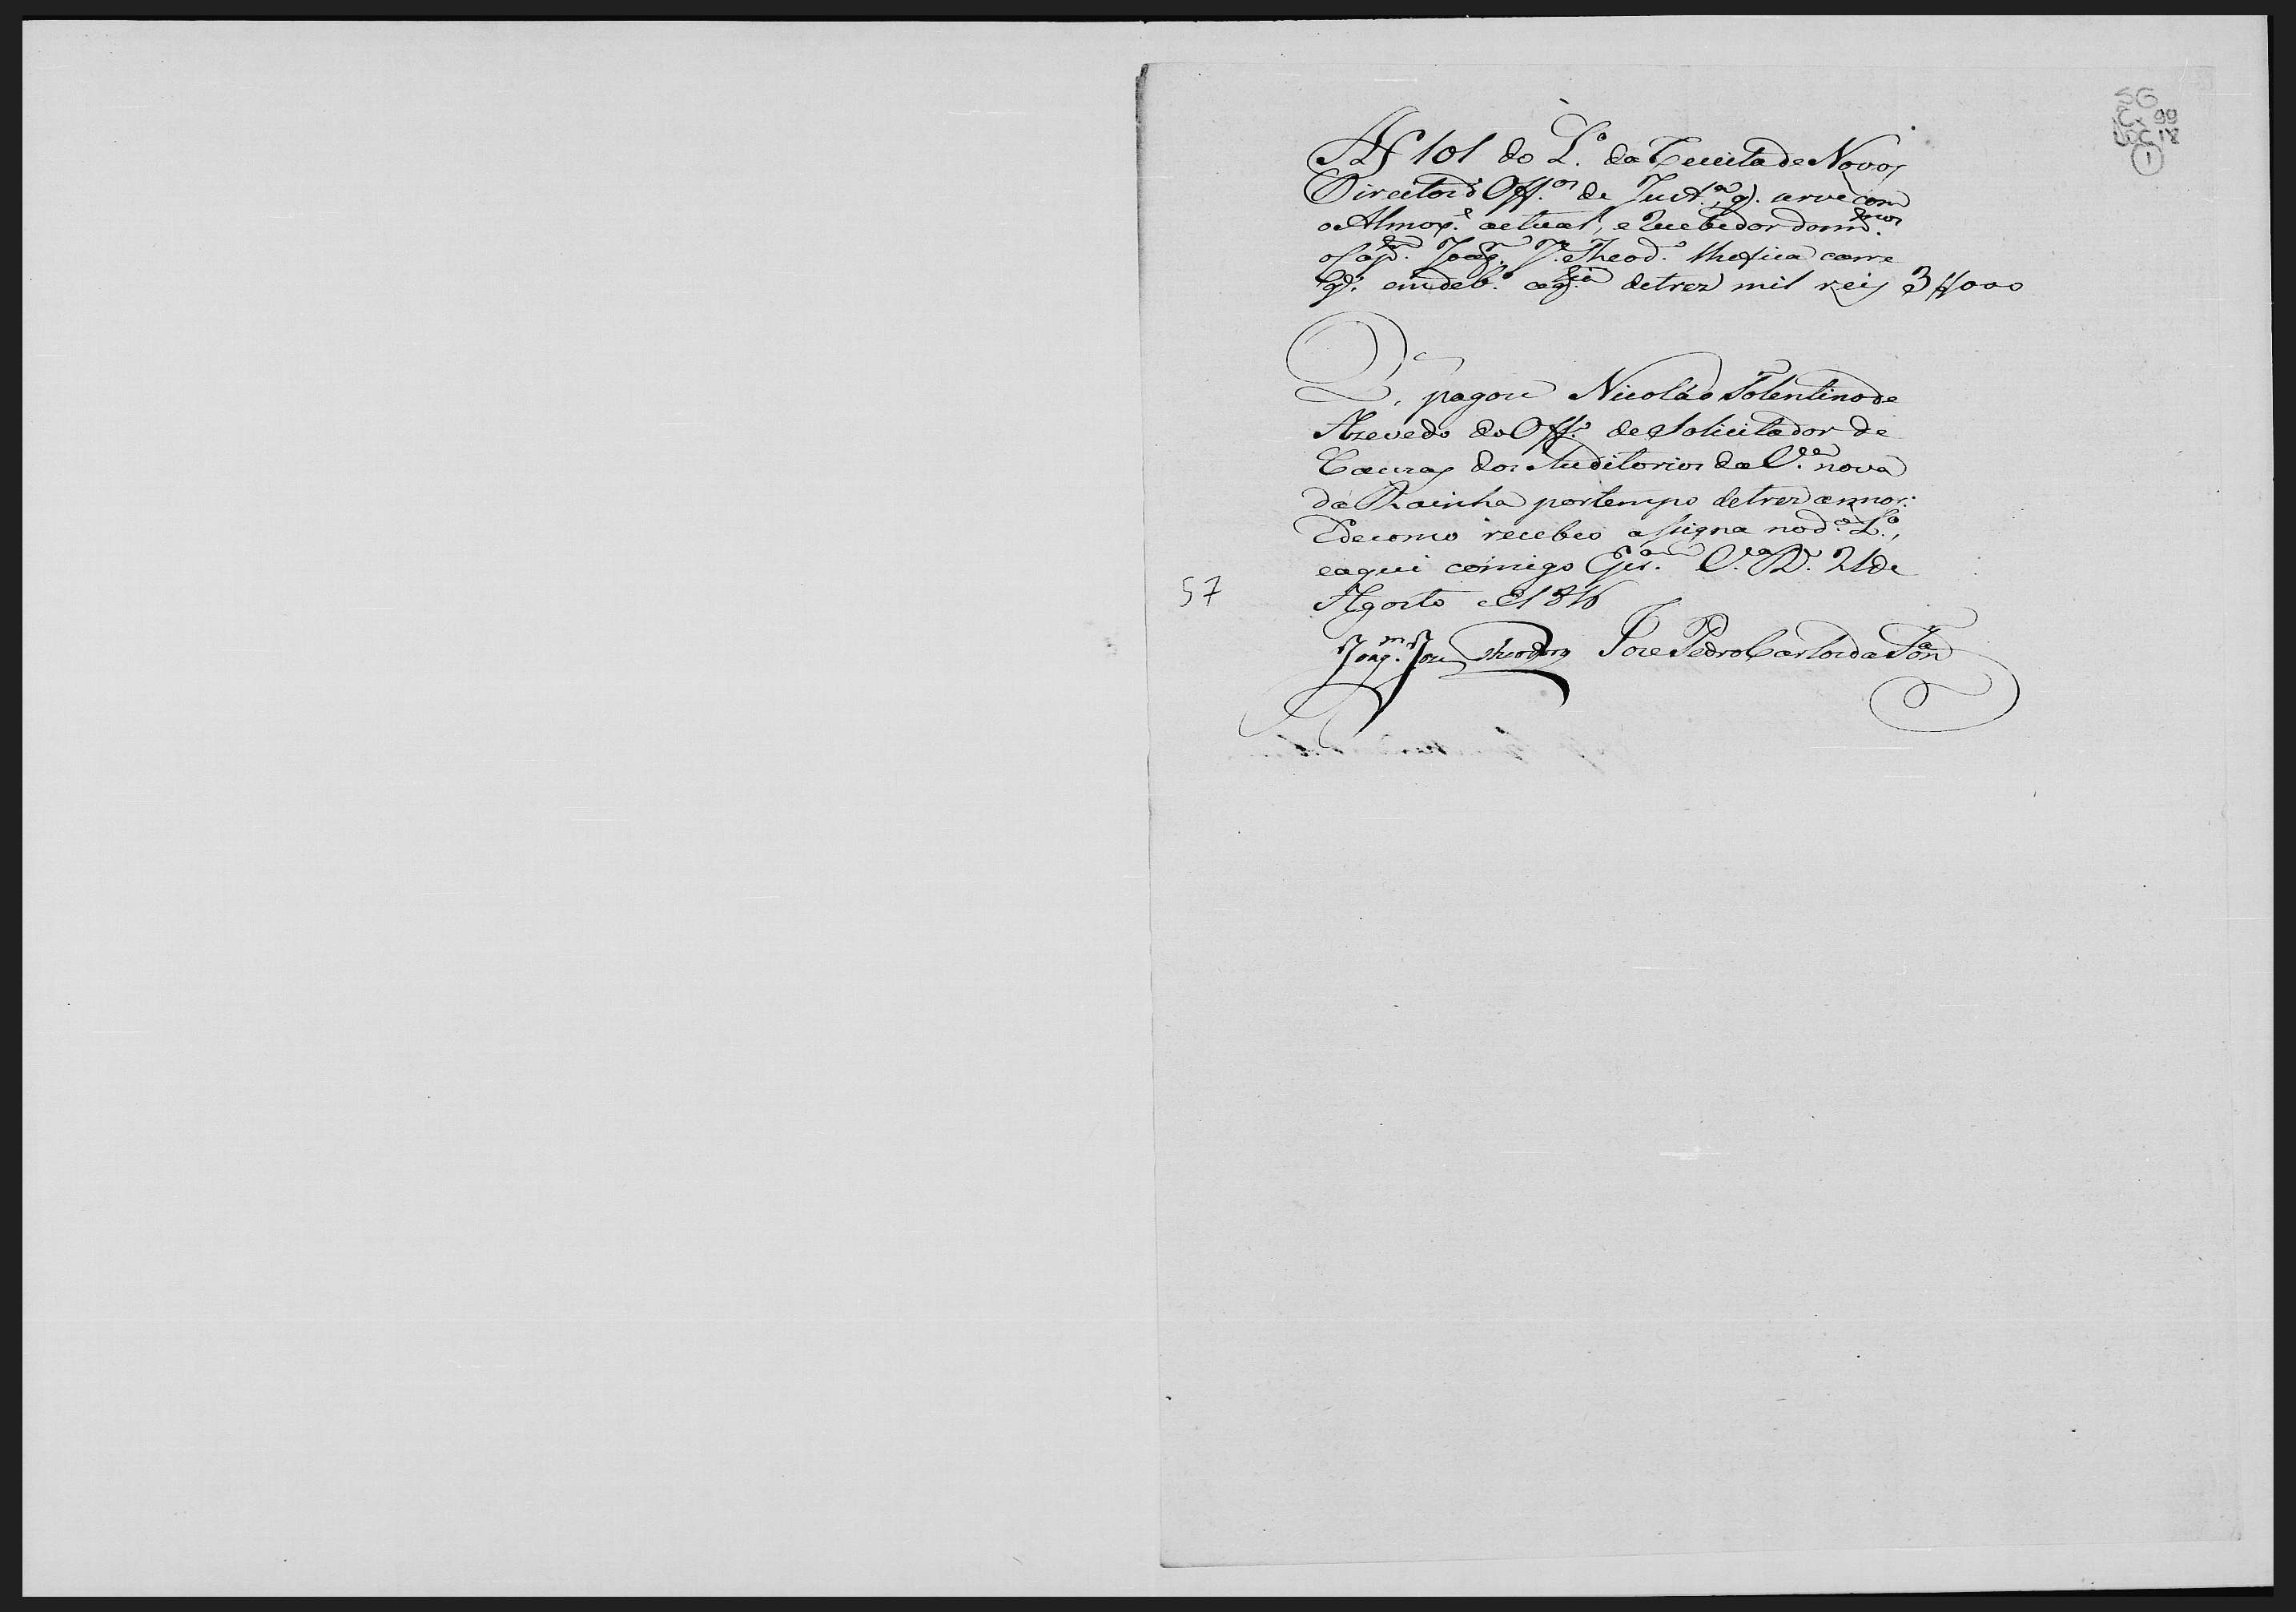 SG
Cx. 99
Doc 18
1
A f 101 do L.º da Receita de Novos
Direitos d Off.os de Just.ª, q. serve com
o Almox.e actual, e Recebedor dos m.mos
o Cap.m Joaq.m J.e Theod.º lhe fica carre
g.º em deb.º a q.tia de trez mil reis 3$000
Q. pagou Nicoláo Tolentino de
Azevedo do Off.º de Solicitador de
Cauzas dos Auditorios da V.ª nova
da Rainha por tempo de trez annos:
E de como recebeo assigna no d.º L.º,
e aqui comigo V.ª R.ª 21 de
Agosto de 1816
57
Joaq.m Jose Theodoro Joze Pedro Carlos da Fon.ca